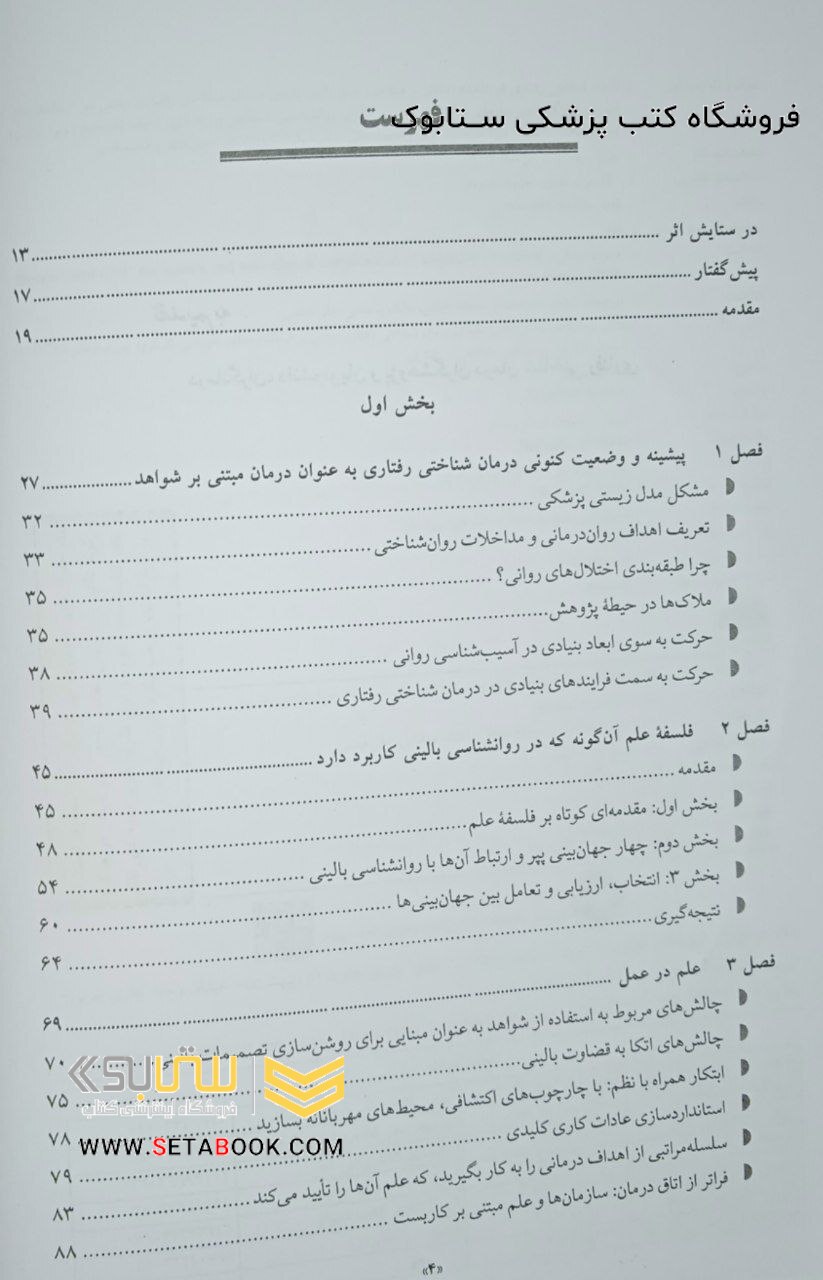 فروشگاه کتب پزشکی ستابوک
فهرست
در ستایش اثر ۱۳
پیش‌گفتار ۱۷
مقدمه ۱۹
بخش اول
فصل ۱ پیشینه و وضعیت کنونی درمان شناختی رفتاری به عنوان درمان مبتنی بر شواهد ۲۷
مشکل مدل زیستی پزشکی ۳۲
تعریف اهداف روان‌درمانی و مداخلات روان‌شناختی ۳۳
چرا طبقه‌بندی اختلال‌های روانی؟ ۳۵
ملاک‌ها در حیطهٔ پژوهش ۳۵
حرکت به سوی ابعاد بنیادی در آسیب‌شناسی روانی ۳۸
حرکت به سمت فرایندهای بنیادی در درمان شناختی رفتاری ۳۹
فصل ۲ فلسفهٔ علم آن‌گونه که در روانشناسی بالینی کاربرد دارد ۴۵
مقدمه ۴۵
بخش اول: مقدمه‌ای کوتاه بر فلسفهٔ علم ۴۸
بخش دوم: چهار جهان‌بینی پپر و ارتباط آن‌ها با روانشناسی بالینی ۵۴
بخش ۳: انتخاب، ارزیابی و تعامل بین جهان‌بینی‌ها ۶۰
نتیجه‌گیری ۶۴
فصل ۳ علم در عمل ۶۹
چالش‌های مربوط به استفاده از شواهد به عنوان مبنایی برای روشن‌سازی ۷۰
چالش‌های اتکا به قضاوت بالینی ۷۵
ابتکار همراه با نظم: با چارچوب‌های اکتشافی، محیط‌های مهربانانه بسازید ۷۸
استانداردسازی عادات کاری کلیدی ۷۹
سلسله‌مراتبی از اهداف درمانی را به کار بگیرید، که علم آن‌ها را تأیید می‌کند ۸۳
فراتر از اتاق درمان: سازمان‌ها و علم مبتنی بر کاربست ۸۸
ستابوک
فروشگاه اینترنتی کتاب
WWW.SETABOOK.COM
«۴»